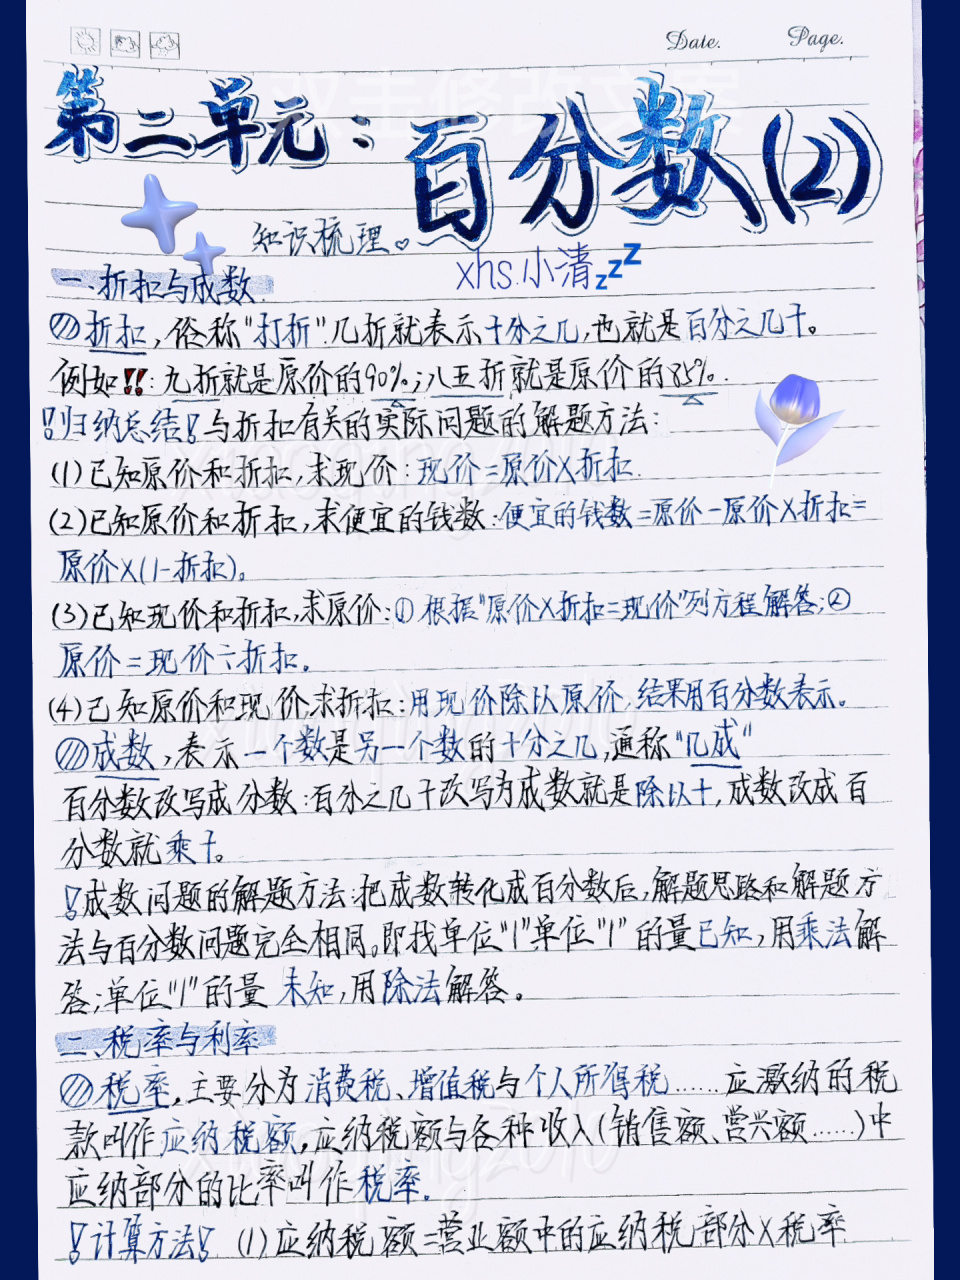 Date. Page.
双击修改文案
第二单元：百分数(2)
知识梳理。
xhs.小清zzz
一.折扣与成数
折扣,俗称"打折".几折就表示十分之几,也就是百分之几十。
例如!!:九折就是原价的90%;八五折就是原价的85%.
!归纳总结!与折扣有关的实际问题的解题方法:
(1)已知原价和折扣,求现价:现价=原价×折扣.
(2)已知原价和折扣,求便宜的钱数:便宜的钱数=原价-原价×折扣=
原价×(1-折扣)。
(3)已知现价和折扣,求原价:①根据"原价×折扣=现价"列方程解答;②
原价=现价÷折扣。
(4)已知原价和现价,求折扣:用现价除以原价,结果用百分数表示。
成数,表示一个数是另一个数的十分之几,通称"几成"
百分数改写成分数:百分之几十改写为成数就是除以十,成数改成百
分数就乘十。
!成数问题的解题方法:把成数转化成百分数后,解题思路和解题方
法与百分数问题完全相同。即找单位"1"单位"1"的量已知,用乘法解
答;单位"1"的量未知,用除法解答。
二、税率与利率
税率,主要分为消费税、增值税与个人所得税……应激纳的税
款叫作应纳税额,应纳税额与各种收入(销售额、营兴额……)中
应纳部分的比率叫作税率.
!计算方法!(1)应纳税额=营业额中的应纳税部分×税率
xiaoqing2010
xiaoqing2010
xiaoqing2010